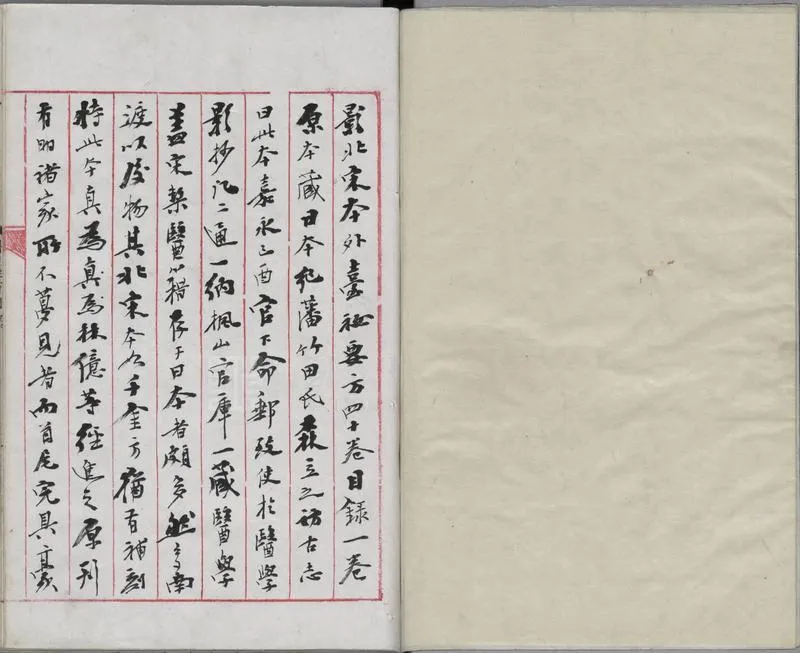 影北宋本外臺祕要方四十卷目錄一卷
原本藏日本紀藩竹田氏森立之訪古志
曰此本嘉永己酉官下命郵致使於醫學
影抄凡二通一納楓山官庫一藏醫學
盖宋槧醫籍存于日本者頗多然多南
渡以後物其北宋本如千金方猶有補刻
特此本真為真為林億等經進之原刊
有明諸家所不夢見者而首尾完具豪